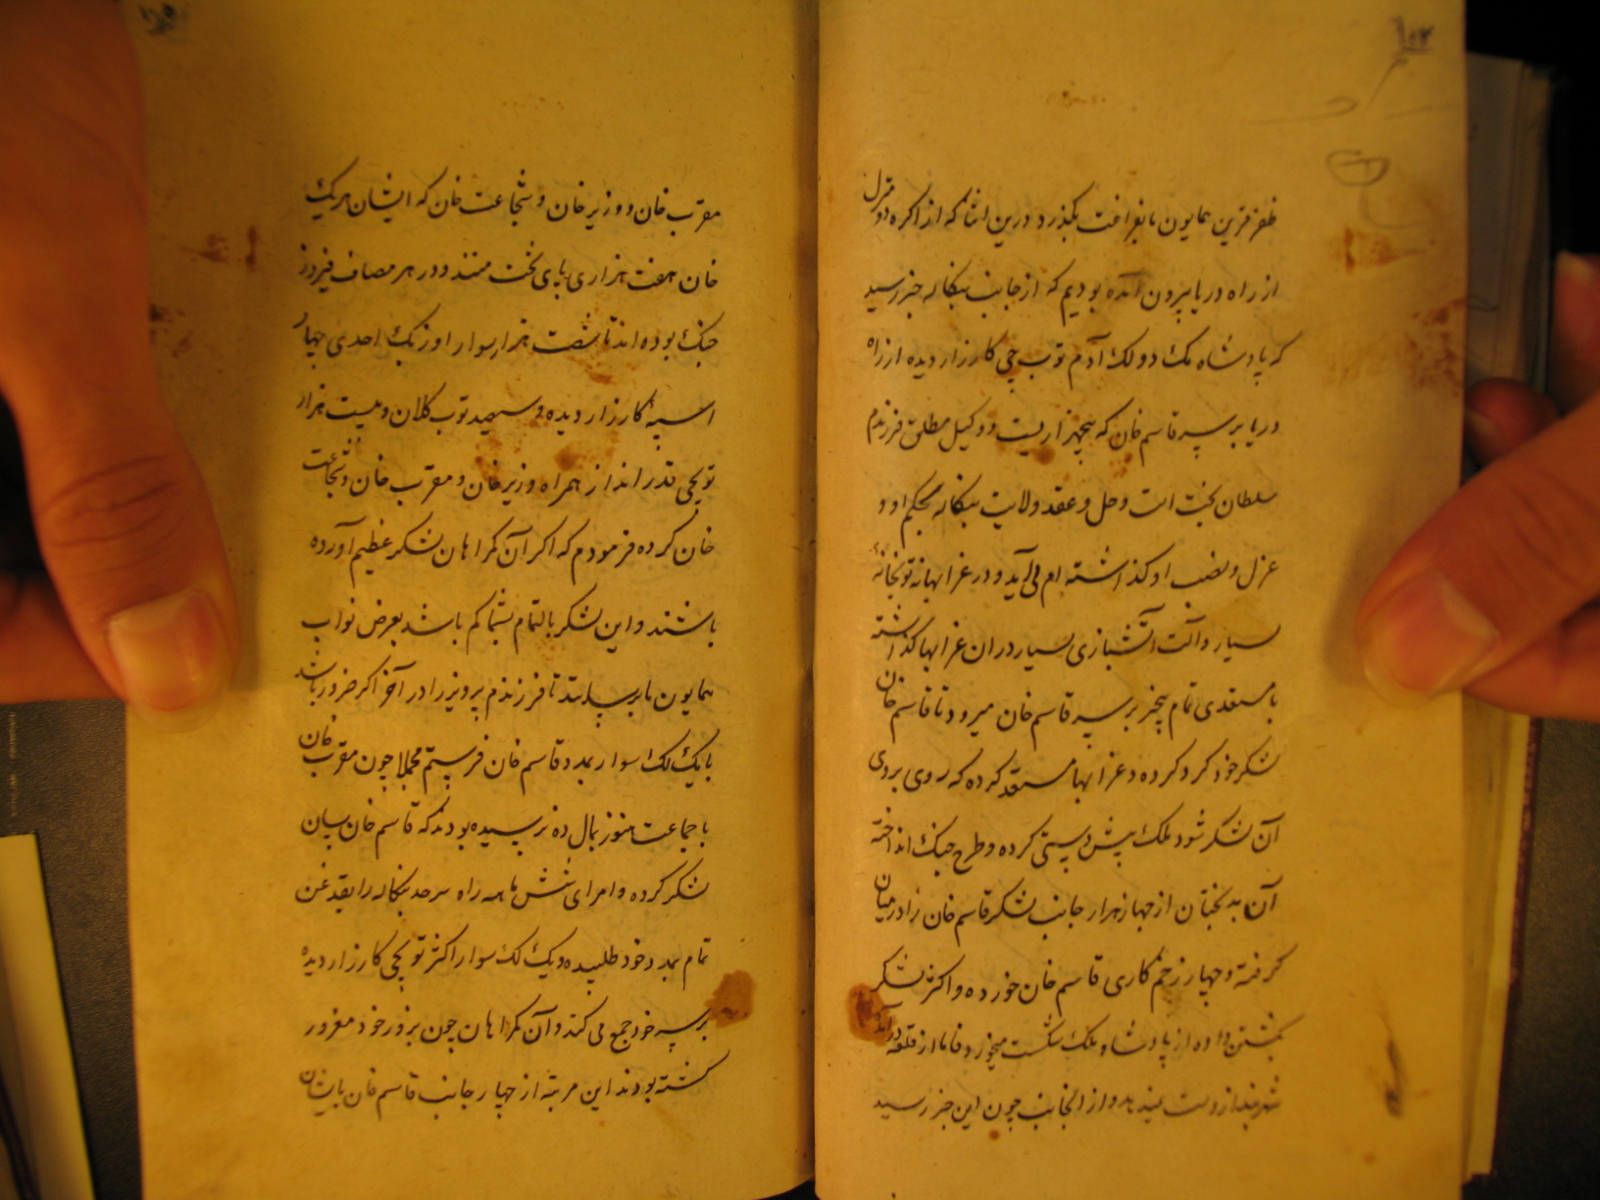 ظفر قرین همایون ما بفراغت بگذرد درین اثنا که از اکره دو منزل
از راه دریا بیرون آمده بودیم که از جانب بنکاله خبر رسید
که پادشاه مک دو لک آدم توب چی کارزار دیده از راه
دریا بر سر قاسم خان که پنجهزاریست و وکیل مطلق فرزندم
سلطان بخت است و حل و عقد ولایت بنکاله بحکم او و
عزل و نصب او کذاشته ام می آید و در غرابها نه توبخانهٔ
بسیار و آلت آتشبازی بسیار در ان غرابها کذاشته
با مستعدی تمام بیخبر بر سر قاسم خان میرود تا قاسم خان
لشکر خود کرد کرده و غرابها مستعد کرده که روی بروی
آن لشکر شود ملک پیش دستی کرده و طرح جنک انداخته
آن بدبختان از چهار هزار جانب لشکر قاسم خان را در میان
کرفته و چهار زخم کاری قاسم خان خورده و اکثر لشکر
بکشتن داده از پادشاه ملک شکست میخورد فاما از قلعه در آمده
شهر بند از دست نمیدهد و از انجانب چون این خبر رسید
مقرب خان و وزیر خان و شجاعت خان که ایشان هر یک
خان هفت هزاری پای تخت منند و در هر مصاف فیروز
جنک بوده اند تا شصت هزار سوار اوزبک احدی چهار
اسپه کارزار دیده و سیصد توب کلان و بیست هزار
توبچی قدر انداز همراه وزیر خان و مقرب خان و شجاعت
خان کرده فرمودم که اکر آن کمراهان لشکر عظیم آورده
باشند و این لشکر بالتمام بشما کم باشد بعرض نواب
همایون ما برسانند تا فرزندم پرویز را در آخر اکر ضرور باشد
با یک لک سوار بمدد قاسم خان فرستم مجملا چون مقرب خان
با جماعت هنوز بمال ده نرسیده بودند که قاسم خان سان
لشکر کرده و امرای شش ماهه راه سرحد بنکاله را بقدغن
تمام بمدد خود طلبیده و یک لک سوار اکثر توبچی کارزار دیده
بر سر خود جمع می کند و آن کمراهان چون بزور خود مغرور
کشته بودند این مرتبه از چهار جانب قاسم خان بایشان